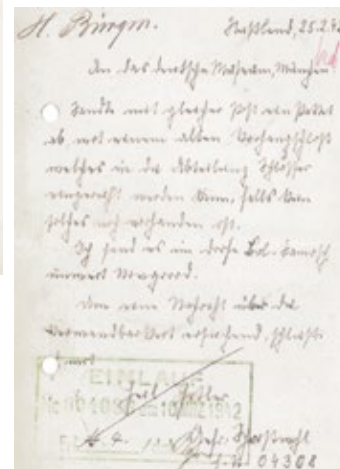 H. Bürgm.
Rußland, 25.2.42
An das deutsche Museum, München
Sandte mit gleicher Post ein Paket
ab mit einem alten Vorhangschloß
welches in die Abteilung Schlösser
eingereiht werden kann, falls kein
solches noch vorhanden ist.
Ich fand es im Dorfe
unweit Nowgorod.
Um eine Nachricht über die
Verwendbarkeit ersuchend, schließt
EINLAUF
10. MRZ 1942
04308